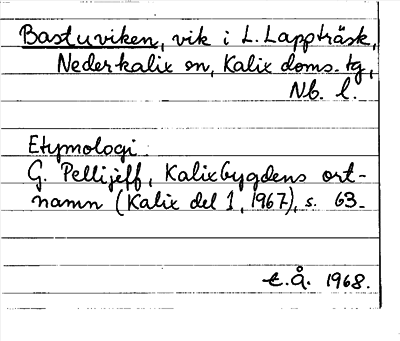 Bastuviken, vik i L. Lappträsk,
Nederkalix sn, Kalix doms. tg,
Nb. l.
Etymologi:
G. Pellijeff, Kalixbygdens ort-
namn (Kalix del 1, 1967), s. 63-
t.Å. 1968.